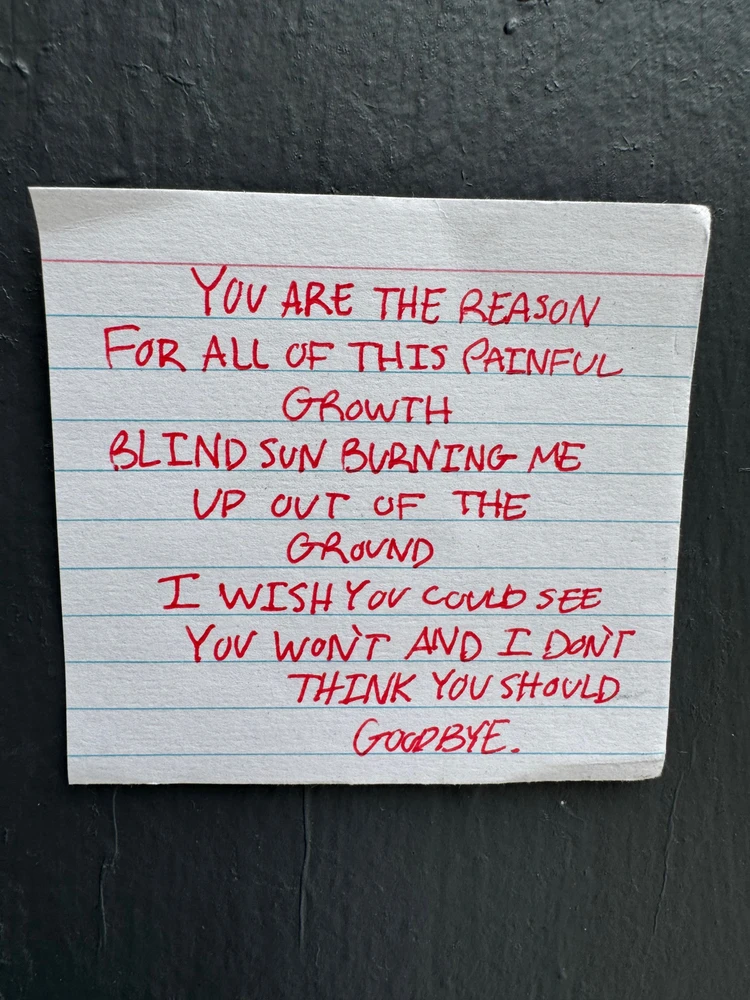 YOU ARE THE REASON
FOR ALL OF THIS PAINFUL
GROWTH
BLIND SUN BURNING ME
UP OUT OF THE
GROUND
I WISH YOU COULD SEE
YOU WON'T AND I DON'T
THINK YOU SHOULD
GOODBYE.